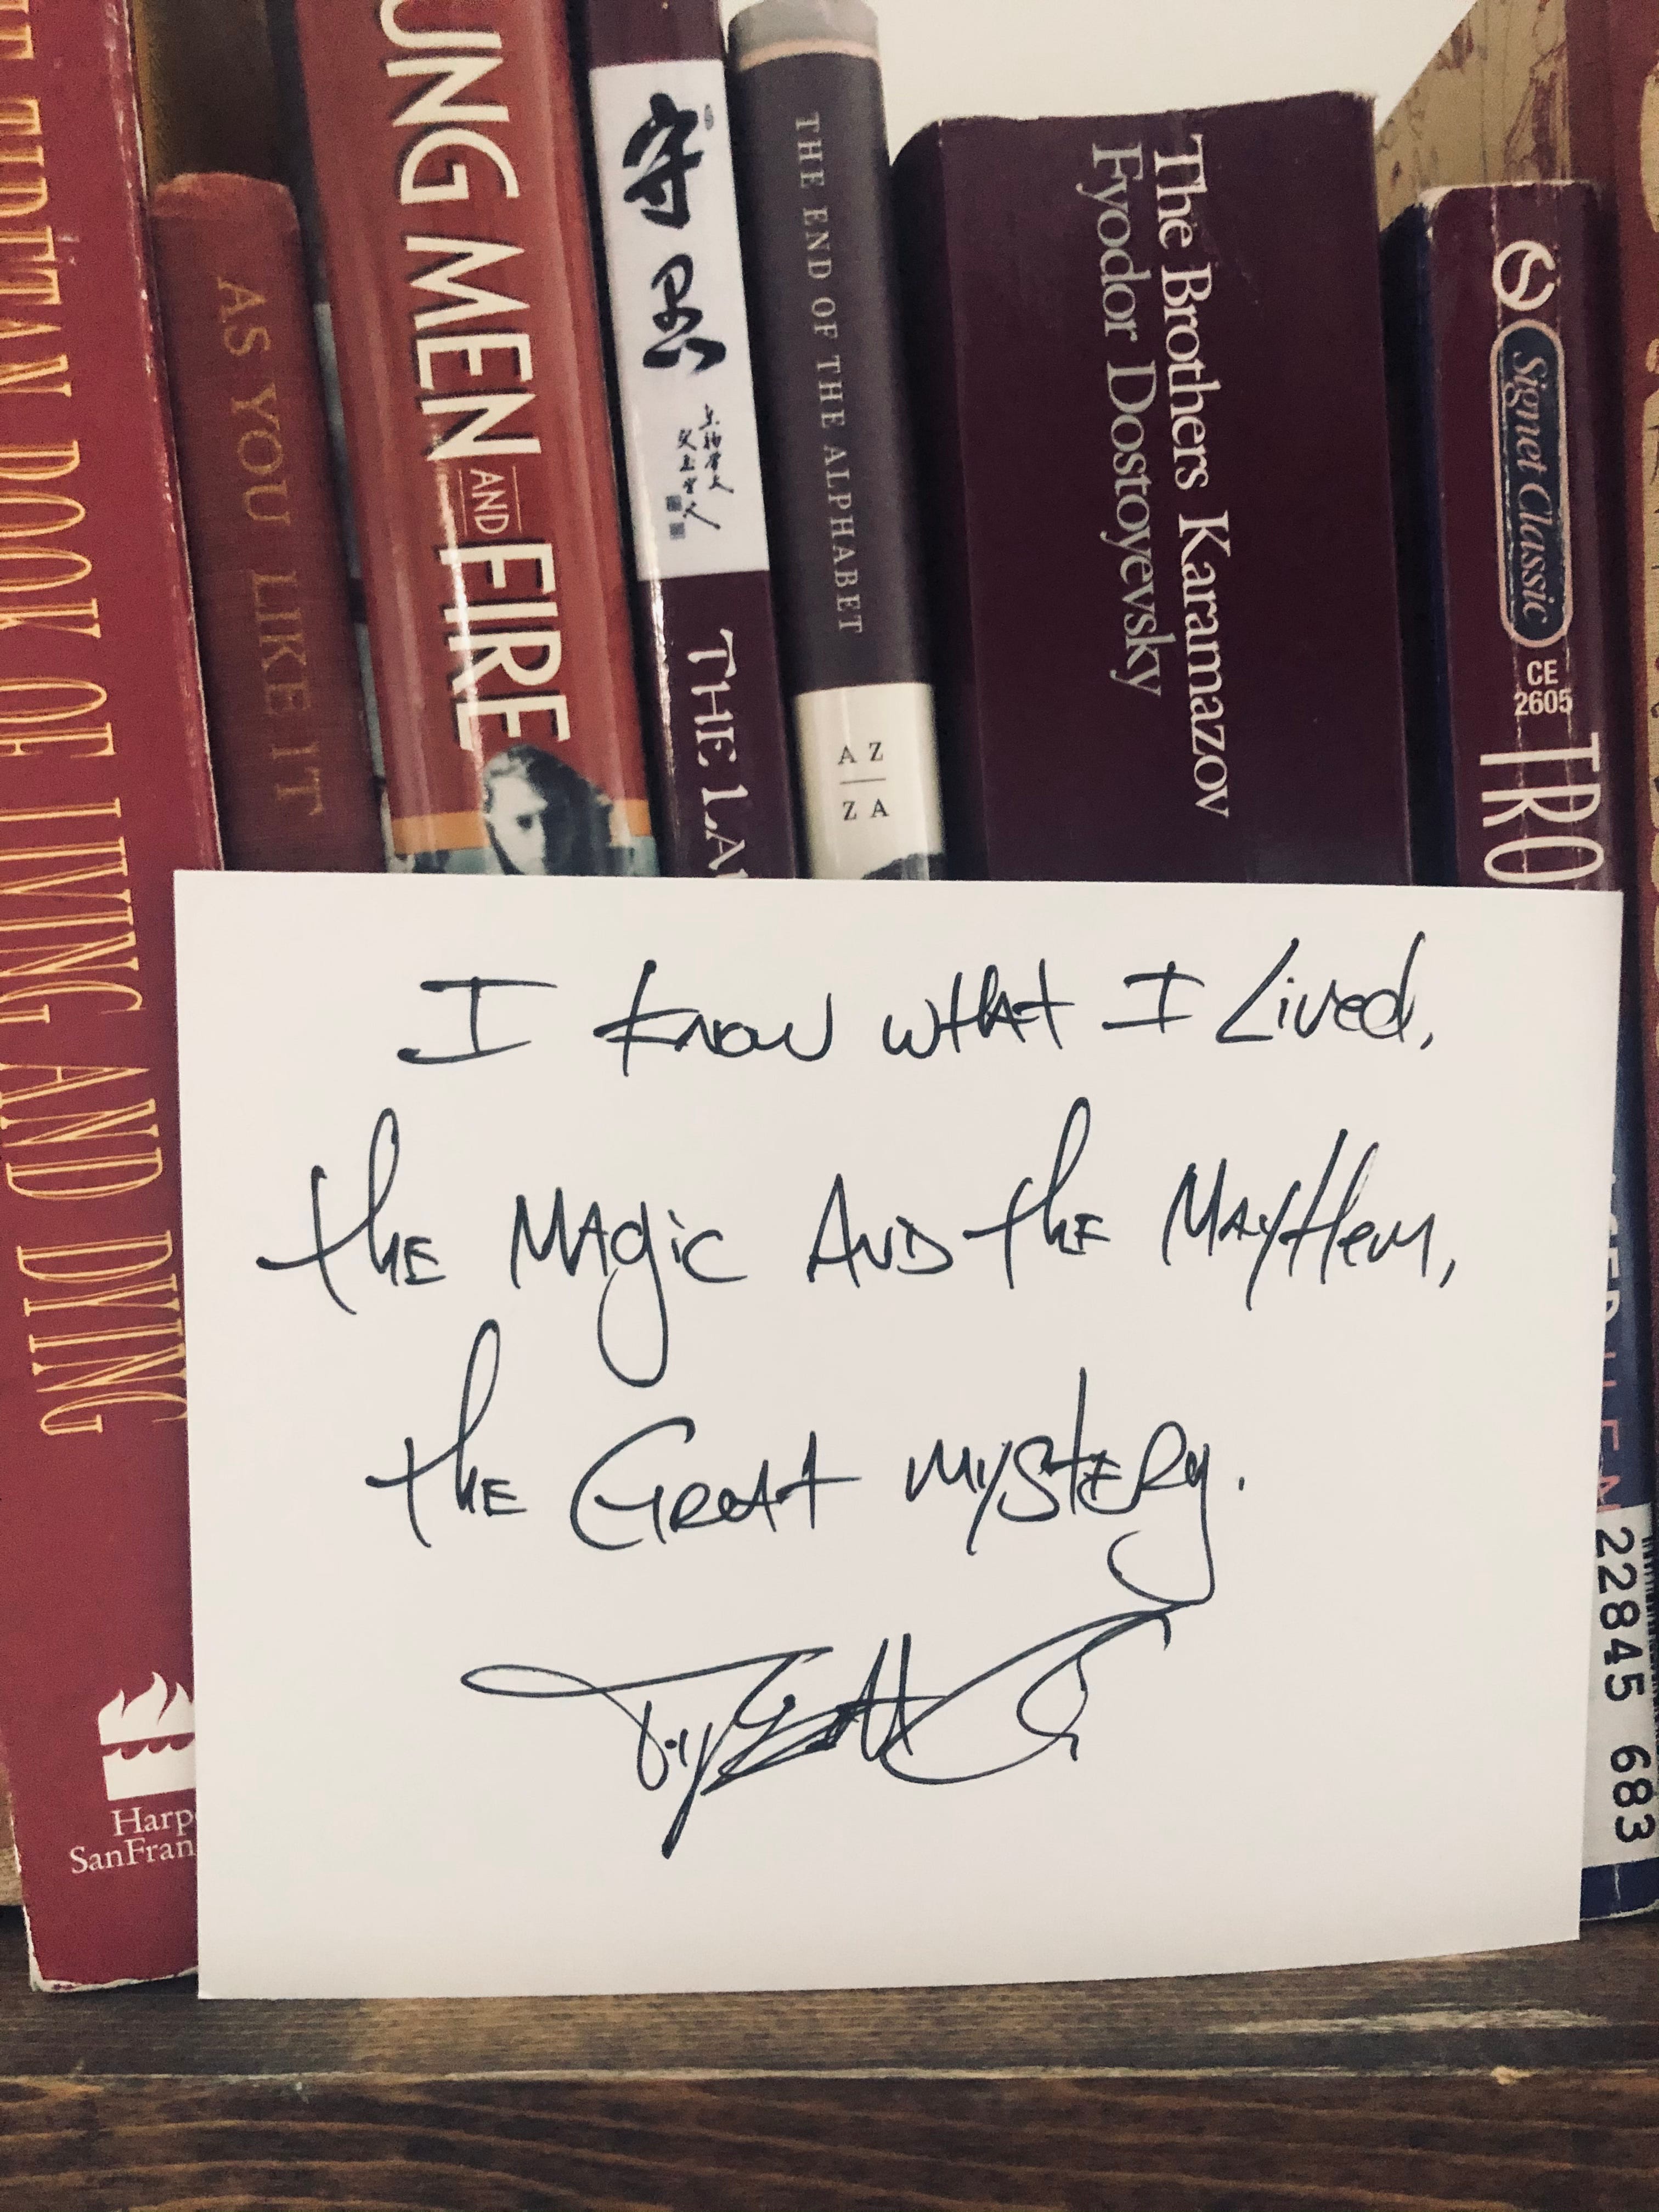 BOOK OF LIVING AND DYING
Harp
SanFran
AS YOU LIKE IT
UNG MEN AND FIRE
守愚
THE LA
THE END OF THE ALPHABET
A Z
Z A
The Brothers Karamazov
Fyodor Dostoyevsky
Signet Classic
CE
2605
TRO
22845 683
I know what I Lived,
the Magic And the Mayhem,
the Great Mystery.